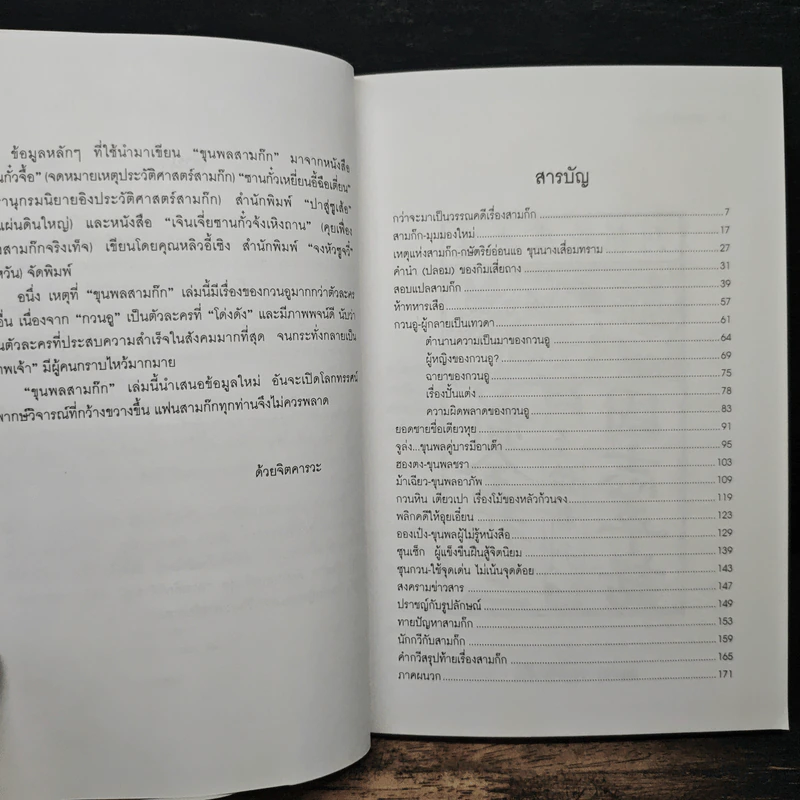 ข้อมูลหลักๆ ที่ใช้นำมาเขียน “ขุนพลสามก๊ก” มาจากหนังสือ
นกั๋วจื้อ” (จดหมายเหตุประวัติศาสตร์สามก๊ก) “ซานกั๋วเหยี่ยนอี้ฉือเตี่ยน”
านุกรมนิยายอิงประวัติศาสตร์สามก๊ก) สำนักพิมพ์ “ปาสู่ซูเส้อ”
แผ่นดินใหญ่) และหนังสือ “เจินเจี่ยซานกั๋วจ้งเหิงถาน” (คุยเฟื่อง
งสามก๊กจริงเท็จ) เขียนโดยคุณหลิวอี้เชิง สำนักพิมพ์ “จงหัวซูจวี๋”
หวัน) จัดพิมพ์
อนึ่ง เหตุที่ “ขุนพลสามก๊ก” เล่มนี้มีเรื่องของกวนอูมากกว่าตัวละคร
อื่น เนื่องจาก “กวนอู” เป็นตัวละครที่ “โด่งดัง” และมีภาพพจน์ดี นับว่า
นตัวละครที่ประสบความสำเร็จในสังคมมากที่สุด จนกระทั่งกลายเป็น
ทพเจ้า” มีผู้คนกราบไหว้มากมาย
“ขุนพลสามก๊ก” เล่มนี้นำเสนอข้อมูลใหม่ อันจะเปิดโลกทรรศน์
พากษ์วิจารณ์ที่กว้างขวางขึ้น แฟนสามก๊กทุกท่านจึงไม่ควรพลาด
ด้วยจิตคารวะ
สารบัญ
กว่าจะมาเป็นวรรณคดีเรื่องสามก๊ก 7
สามก๊ก-มุมมองใหม่ 17
เหตุแห่งสามก๊ก-กษัตริย์อ่อนแอ ขุนนางเสื่อมทราม 27
คำนำ (ปลอม) ของกิมเสี่ยถาง 31
สอบแปลสามก๊ก 39
ห้าทหารเสือ 57
กวนอู-ผู้กลายเป็นเทวดา 61
ตำนานความเป็นมาของกวนอู 64
ผู้หญิงของกวนอู? 69
ฉายาของกวนอู 75
เรื่องปั้นแต่ง 78
ความผิดพลาดของกวนอู 83
ยอดชายชื่อเตียวหุย 91
จูล่ง...ขุนพลคู่บารมีอาเต๊า 95
ฮองตง-ขุนพลชรา 103
ม้าเฉียว-ขุนพลอาภัพ 109
กวนหิน เตียวเปา เรื่องโม้ของหลัวก้วนจง 119
พลิกคดีให้อุยเอี๋ยน 123
อองเป๋ง-ขุนพลผู้ไม่รู้หนังสือ 129
ซุนเซ็ก ผู้แข็งขืนฝืนสู้จิตนิยม 139
ซุนกวน-ใช้จุดเด่น ไม่เน้นจุดด้อย 143
สงครามข่าวสาร 147
ปราชญ์กับรูปลักษณ์ 149
ทายปัญหาสามก๊ก 153
นักกวีกับสามก๊ก 159
คำกวีสรุปท้ายเรื่องสามก๊ก 165
ภาคผนวก 171